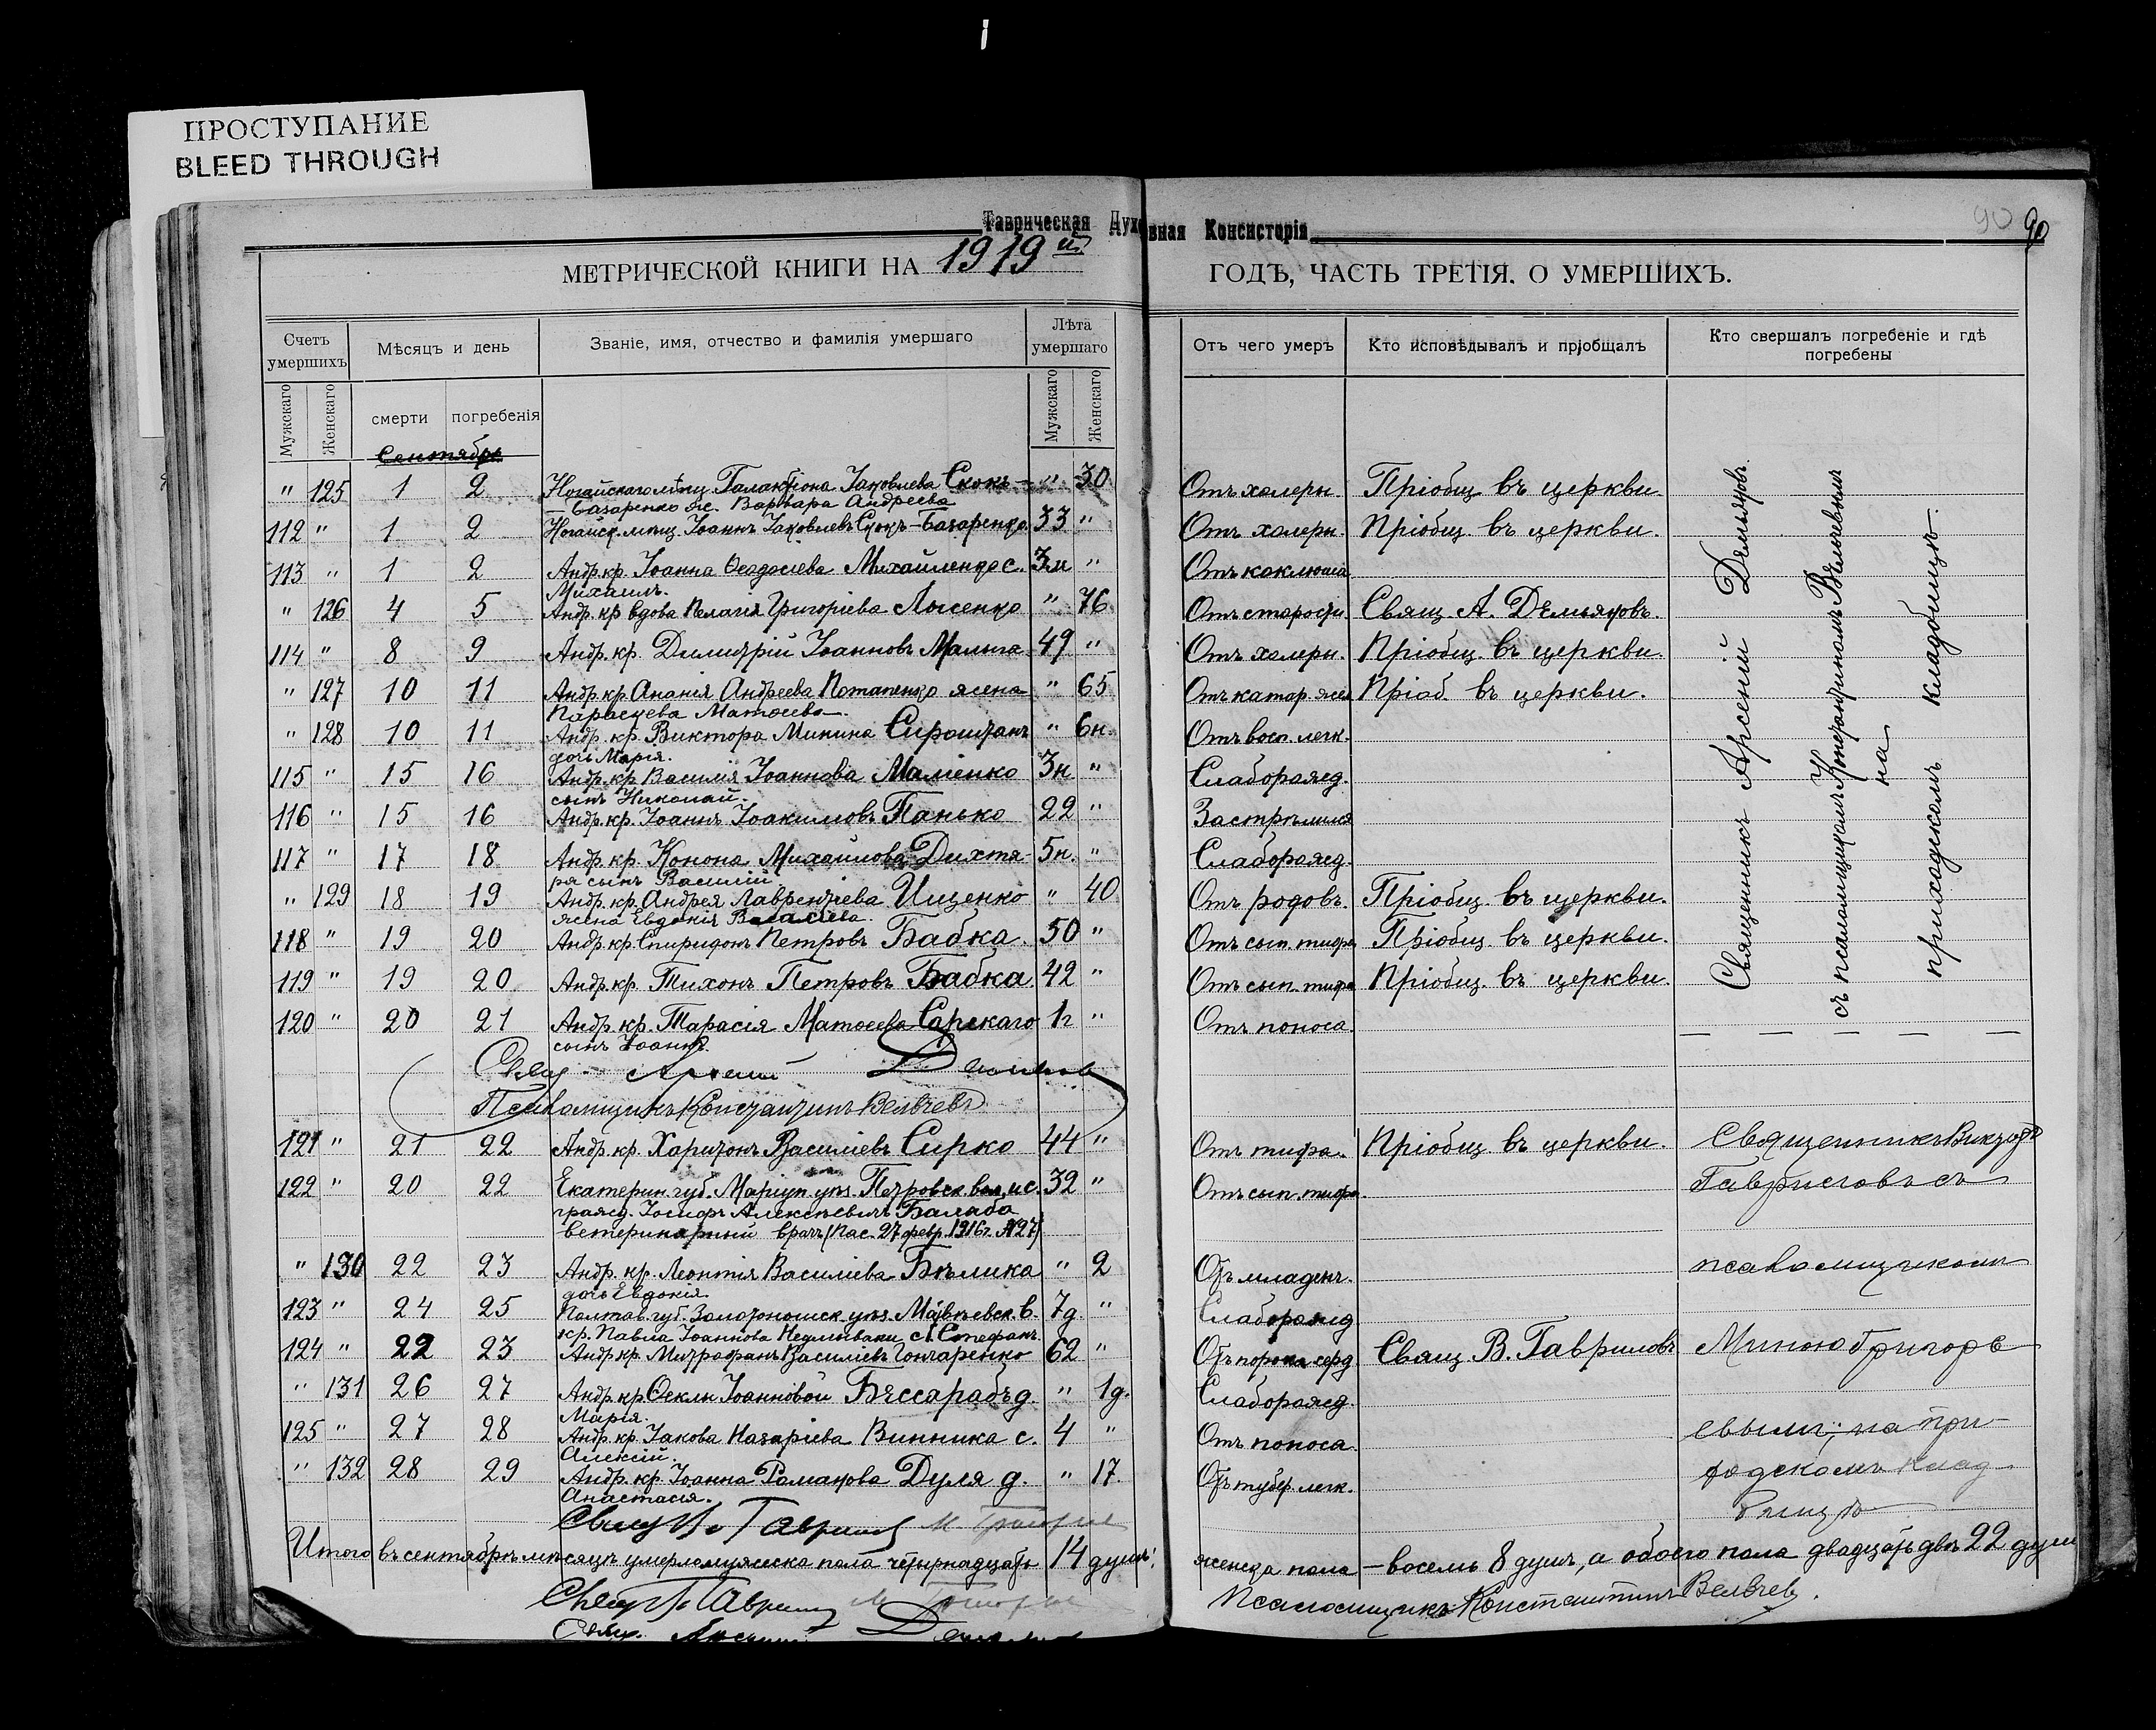 ПРОСТУПАНИЕ
BLEED THROUGH
Таврическая Духовная Консисторія
90 90
МЕТРИЧЕСКОЙ КНИГИ НА 1919й ГОДѢ, ЧАСТЬ ТРЕТІЯ. О УМЕРШИХЪ.
Счетъ умершихъ
Мѣсяцъ и день
Званіе, имя, отчество и фамилія умершаго
Лѣта умершаго
Отъ чего умеръ
Кто исповѣдывалъ и пріобщалъ
Кто свершалъ погребеніе и гдѣ погребены
Мужскаго Женскаго смерти погребенія Мужскаго Женскаго
Сентябрь
" 125 1 2 Ногайскаго мѣщ. Галактіона Іаковлева Скокъ- " 30 Отъ холеры. Пріобщ. въ церкви.
-Базаренко ж. Варвара Андреева
112 " 1 2 Ногайск. мѣщ. Іоаннъ Іаковлевъ Скокъ-Базаренко 33 " Отъ холеры. Пріобщ. въ церкви.
113 " 1 2 Андр. кр. Іоанна Ѳеодосіева Михайленко с. 3м " Отъ коклюша
Михаилъ.
" 126 4 5 Андр. кр. вдова Пелагія Григоріева Лысенко " 76 Отъ старости. Свящ. А. Демьяновъ.
114 " 8 9 Андр. кр. Димитрій Іоанновъ Малыга 49 " Отъ холеры. Пріобщ. въ церкви.
" 127 10 11 Андр. кр. Ананія Андреева Потапенко жена " 65 Отъ катар. жел. Пріоб. въ церкви.
Параскева Матѳеева.
" 128 10 11 Андр. кр. Виктора Минина Сироштанъ " 6н. Отъ восп. легк.
дочь Марія.
115 " 15 16 Андр. кр. Василія Іоаннова Маліенко 3н " Слаборожд.
сынъ Николай.
116 " 15 16 Андр. кр. Іоаннъ Іоакимовъ Панько 22 " Застрѣлился
117 " 17 18 Андр. кр. Конона Михайлова Дихтя- 5н. " Слаборожд.
ря сынъ Василій
" 129 18 19 Андр. кр. Андрея Лаврентіева Ищенко " 40 Отъ родовъ. Пріобщ. въ церкви.
жена Евдокія Василіева.
118 " 19 20 Андр. кр. Спиридонъ Петровъ Бабка. 50 " Отъ сып. тифа Пріобщ. въ церкви.
119 " 19 20 Андр. кр. Тихонъ Петровъ Бабка. 42 " Отъ сып. тифа Пріобщ. въ церкви.
120 " 20 21 Андр. кр. Тарасія Матѳеева Сарскаго 1г " Отъ поноса.
сынъ Іоаннъ.
Священникъ Арсеній Демьяновъ
съ псаломщикомъ Константиномъ Вельчевымъ
на
приходскомъ кладбищѣ.
Свящ. Арсеній Демьяновъ
Псаломщикъ Константинъ Вельчевъ
121 " 21 22 Андр. кр. Харитонъ Василіевъ Сирко 44 " Отъ тифа. Пріобщ. въ церкви. Священникъ Викторъ
122 " 20 22 Екатерин. губ. Маріуп. уѣз. Петровск. вол. и с. 32 " Отъ сып. тифа Гавриловъ съ
гражд. Іосифъ Алексѣевичъ Балаба
ветеринарный врачъ (Пас. 27 февр. 1916г. №27)
" 130 22 23 Андр. кр. Леонтія Василіева Бѣлика " 2 Отъ младенч. псаломщикомъ
дочь Евдокія.
123 " 24 25 Полтав. губ. Золотоношск. уѣз. в. 7д. " Слаборожд
кр. Павла Іоаннова с. Стефанъ.
124 " 22 23 Андр. кр. Митрофанъ Василіевъ Гончаренко 62 " Отъ порока серд Свящ. В. Гавриловъ Миною Григорь-
" 131 26 27 Андр. кр. Ѳеклы Іоанновой Бессарабъ д. " 1д. Слаборожд.
Марія.
125 " 27 28 Андр. кр. Іакова Назаріева Винника с. 4 " Отъ поноса. евымъ, на при-
Алексій.
" 132 28 29 Андр. кр. Іоанна Романова Дуля д. " 17. Отъ тубер. легк. ходскомъ клад-
Анастасія.
бищѣ
Свящ. В. Гавриловъ М.
Итого въ сентябрѣ мѣсяцѣ умерло мужеска пола четырнадцать 14 душъ; женска пола - восемь 8 душъ, а обоего пола двадцать двѣ 22 души
Свящ. В. Гавриловъ М. Псаломщикъ Константинъ Вельчевъ.
Свящ. Арсеній Демьяновъ